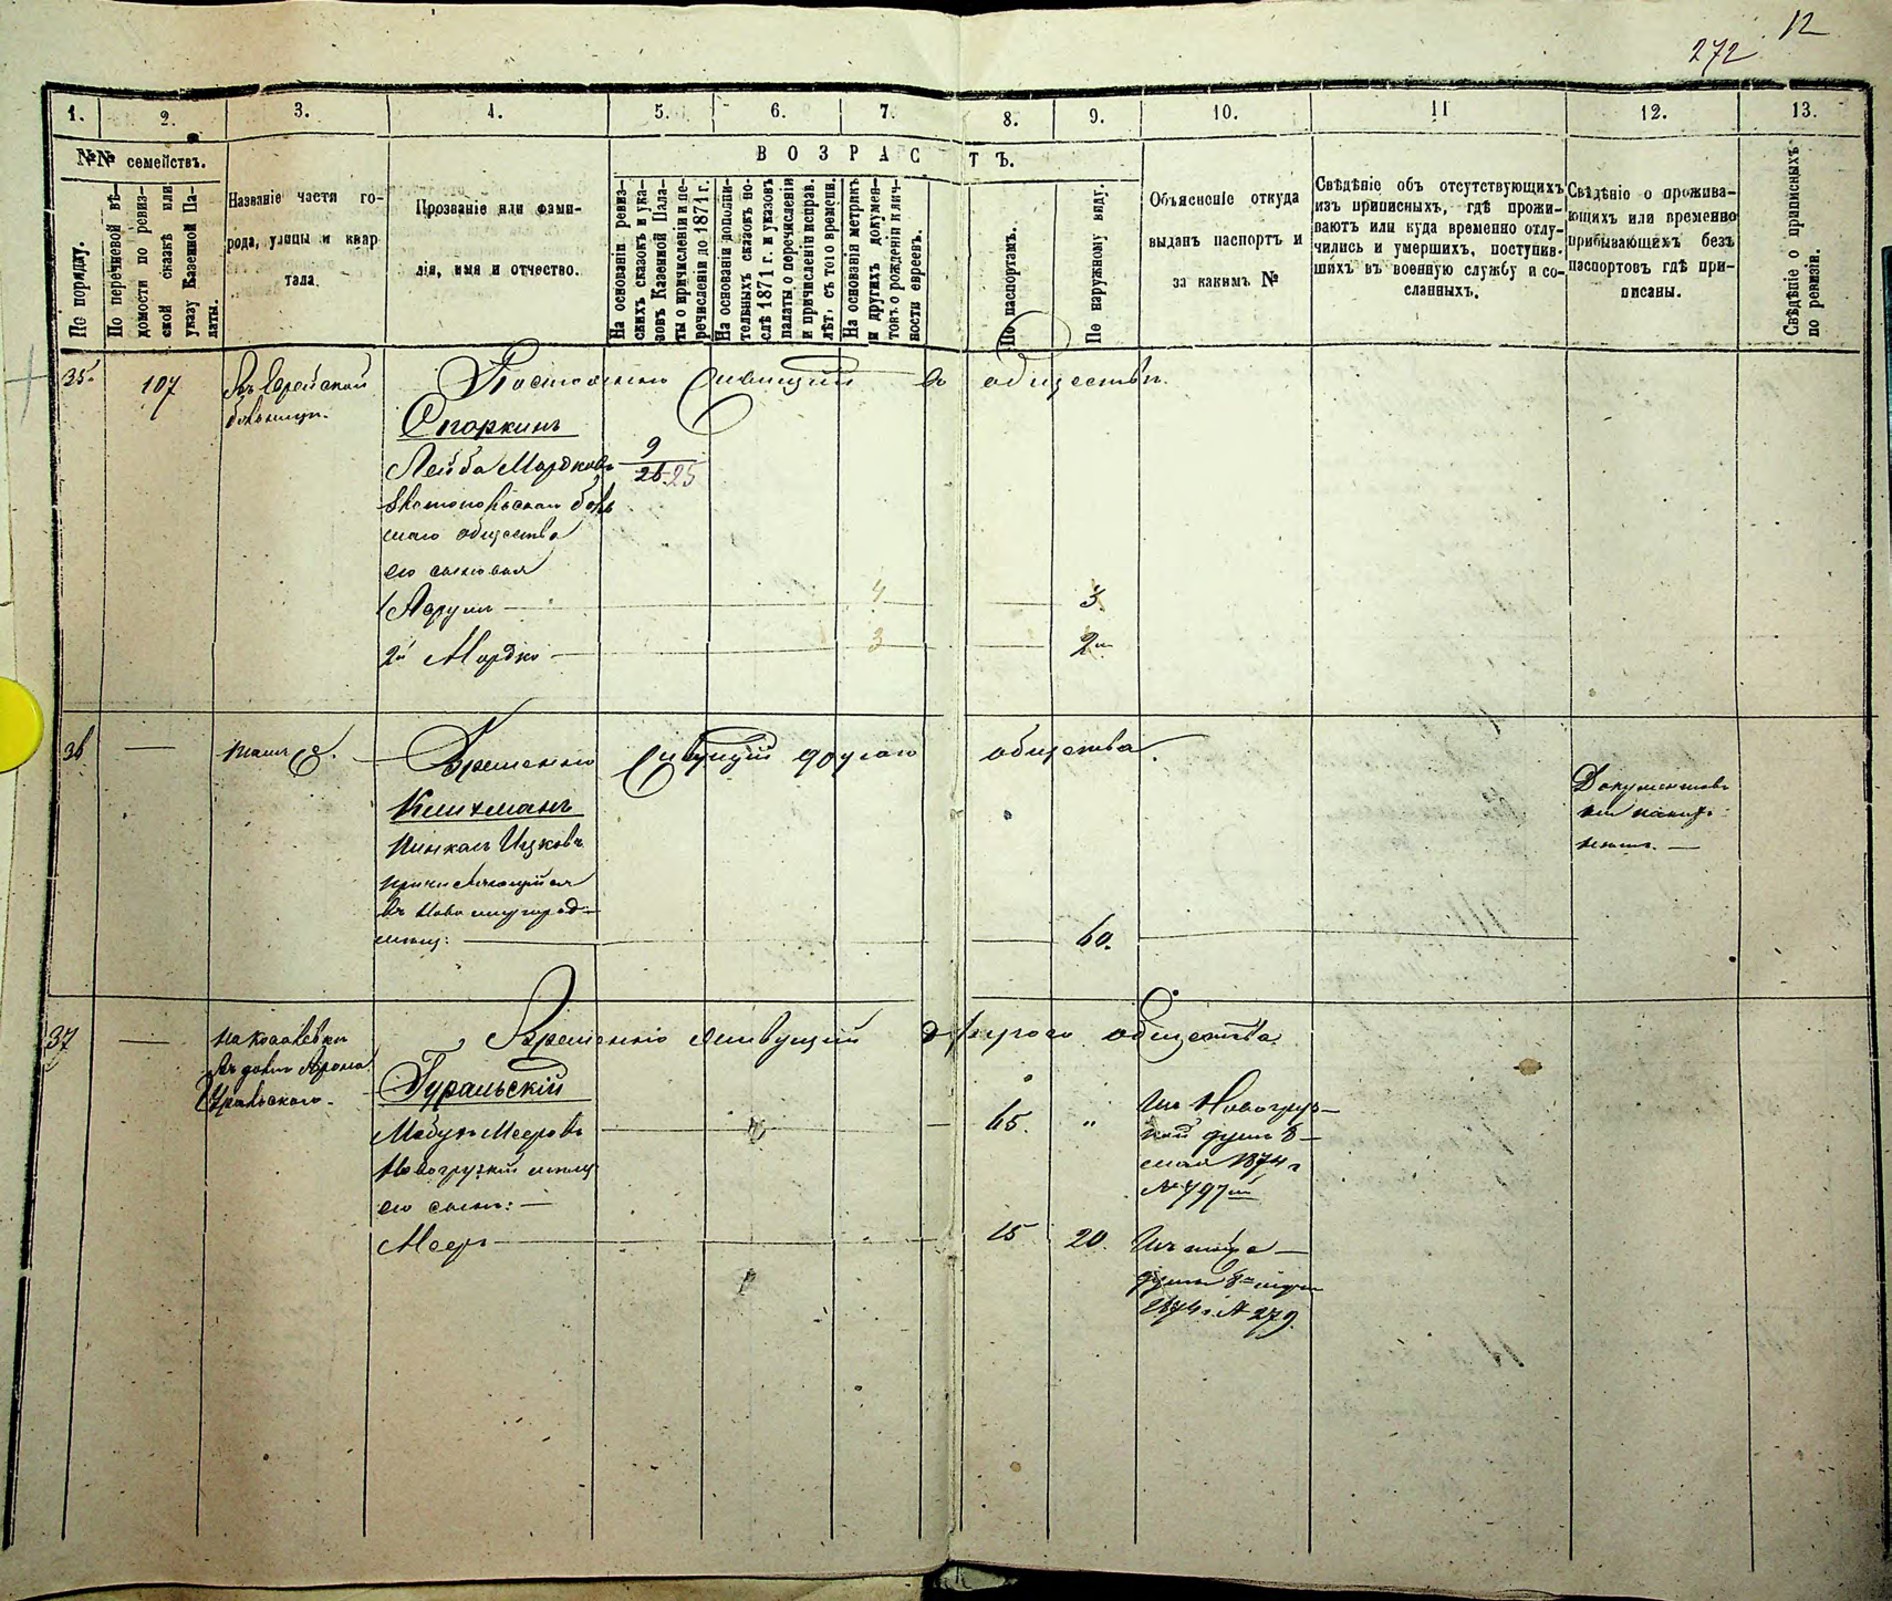 12
272
1.
2.
3.
4.
5.
6.
7.
8.
9.
10.
11
12.
13.
№№ семействъ.
ВОЗРАСТЪ.
По порядку.
По перечневой вѣ-
домости по ревиз-
ской сказкѣ или
указу Казенной Па-
латы.
Названіе части го-
рода, улицы и квар
тала.
Прозваніе или фами-
лія, имя и отчество.
На основаніи ревиз-
скихъ сказокъ и ука-
зовъ Казенной Пала-
ты о причисленіи и пе-
речисленіи до 1871 г.
На основаніи дополни-
тельныхъ сказокъ по-
слѣ 1871 г. и указовъ
палаты о перечисленіи
и причисленіи исправ.
лѣт. съ того времени.
На основаніи метрикъ
и другихъ докумен-
товъ о рожденіи и лич-
ности евреевъ.
По паспортамъ.
По наружному виду.
Объясненіе откуда
выданъ паспортъ и
за какимъ №
Свѣдѣніе объ отсутствующихъ
изъ приписныхъ, гдѣ прожи-
ваютъ или куда временно отлу-
чились и умершихъ, поступив-
шихъ въ военную службу и со-
сланныхъ.
Свѣдѣніе о прожива-
ющихъ или временно
прибывающихъ безъ
паспортовъ гдѣ при-
писаны.
Свѣдѣніе о приписныхъ
по ревизіи.
35.
107
Въ Еврейской
больницѣ.
Постоянно живущій въ обществѣ.
Спаркинъ
Лейба Мордковъ
9
26 25
общества
его сыновья
1 Аарунъ
4
3.
2й Мордко
3
2
36
—
тамъ же.
Временно живущій другаго общества.
Клихманъ
Пинхасъ Ицковъ
причисляющійся
въ Ново
60.
Документовъ
37
—
Въ домѣ Арона
Уральскаго.
Временно живущій другого общества
Гуральскій
Мееровъ
его сынъ: —
65.
"
Изъ Новогруд-
ской думы 8
мая 1874 г
№ 797
Мееръ
15
20.
думы 8
1874 г. № 279.